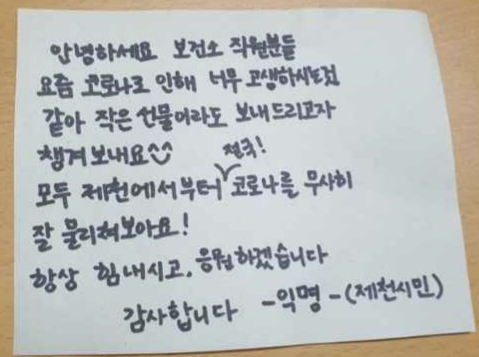 안녕하세요 보건소 직원분들
요즘 코로나로 인해 너무 고생하시는것
같아 작은 선물이라도 보내드리고자
챙겨보내요
전국!
모두 제천에서부터 코로나를 무사히
잘 물리쳐보아요!
항상 힘내시고, 응원하겠습니다
감사합니다 -익명-(제천시민)